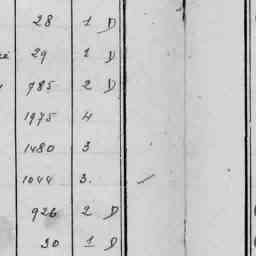 28 1 D
29 1 D
785 2 D
1975 4
1480 3
1044 3.
926 2 D
30 1 D